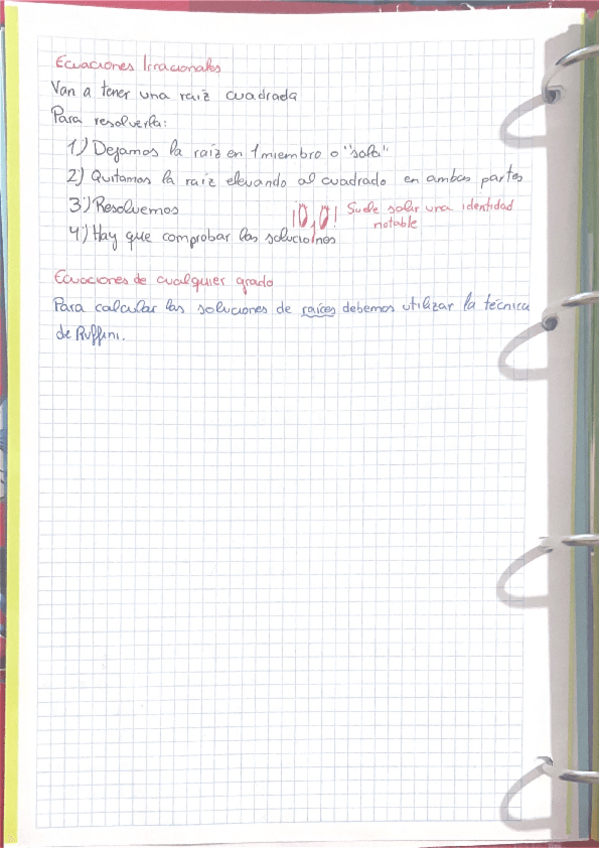 Ecuaciones Irracionales
Van a tener una raíz cuadrada
Para resolverla:
1) Dejamos la raíz en 1 miembro o "sola"
2) Quitamos la raíz elevando al cuadrado en ambas partes
3) Resolvemos
¡O,O! Suele salir una identidad
notable
4) Hay que comprobar las soluciones
Ecuaciones de cualquier grado
Para calcular las soluciones de raíces debemos utilizar la técnica
de Ruffini.